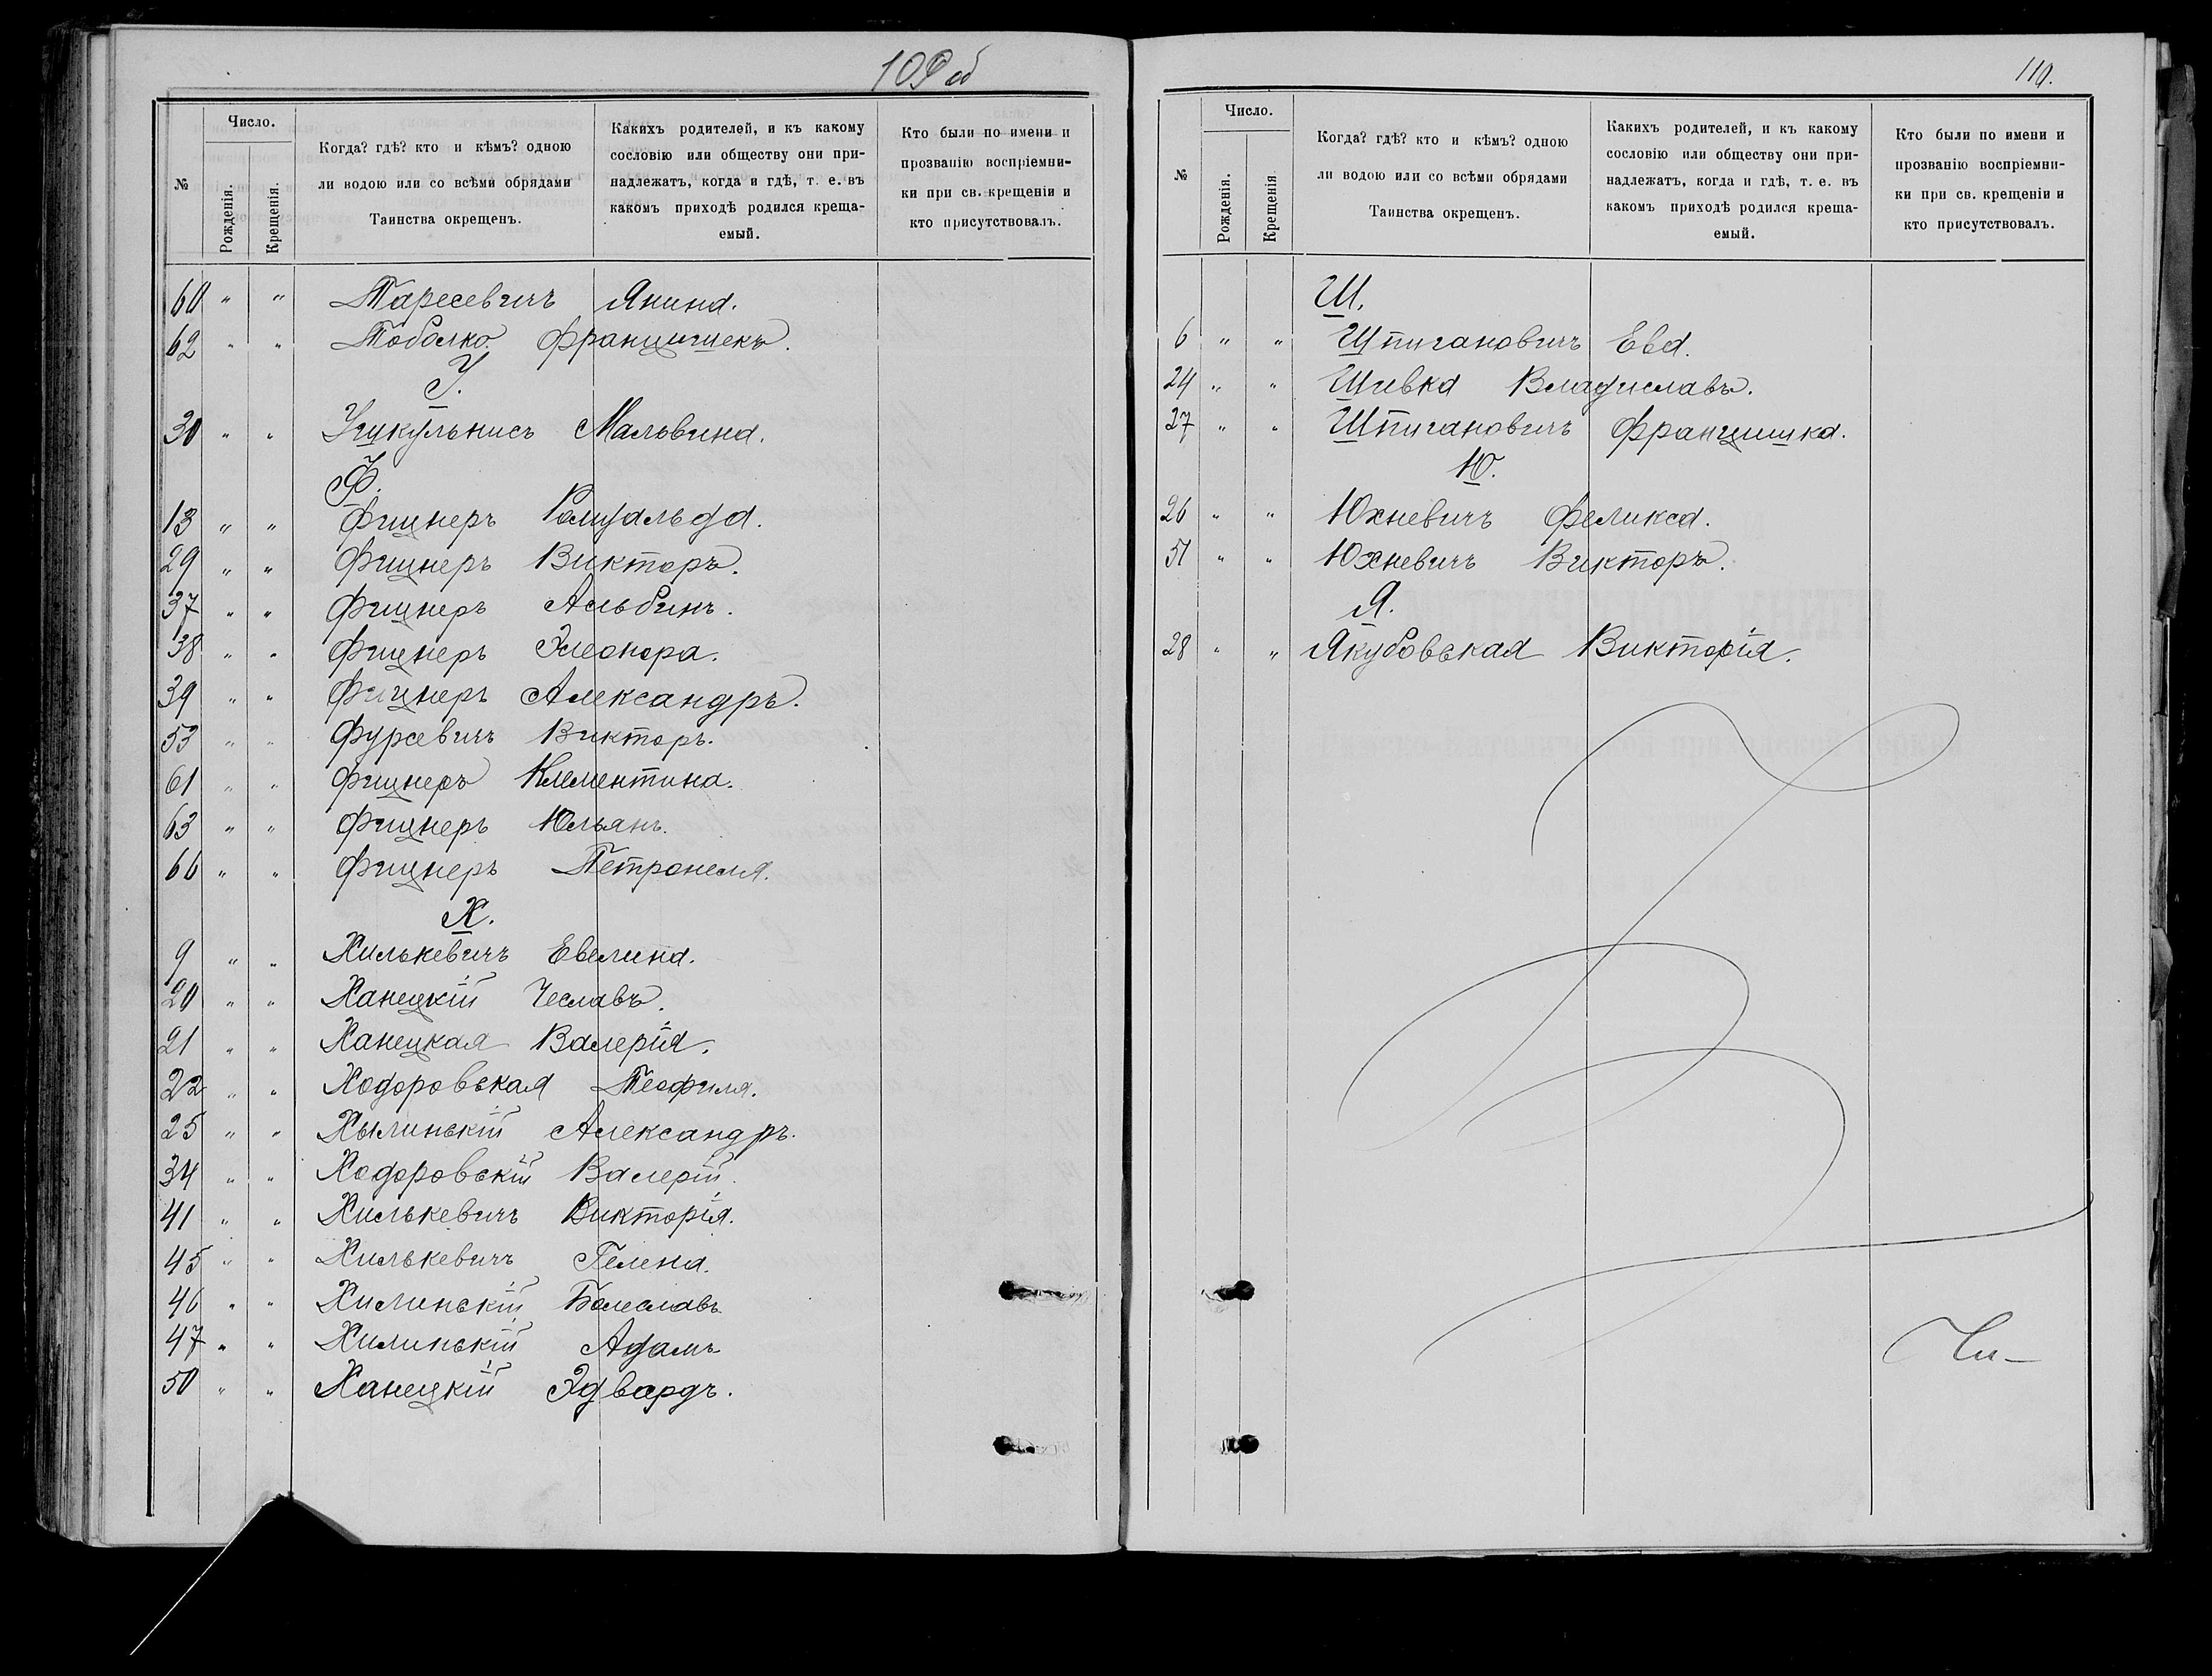 109 об
№
Число.
Рожденія.
Крещенія.
Когда? гдѣ? кто и кѣмъ? одною
ли водою или со всѣми обрядами
Таинства окрещенъ.
Какихъ родителей, и къ какому
сословію или обществу они при-
надлежатъ, когда и гдѣ, т. е. въ
какомъ приходѣ родился креща-
емый.
Кто были по имени и
прозванію воспріемни-
ки при св. крещеніи и
кто присутствовалъ.
60 " " Тарсевичъ Янина.
62 " " Тоболко Францишекъ.
У.
30 " " Ушкульнисъ Мальвина.
Ф.
13 " " Фицнеръ Ромуальда.
29 " " Фицнеръ Викторъ.
37 " " Фицнеръ Альбинъ.
38 " " Фицнеръ Элеонора.
39 " " Фицнеръ Александръ.
53 " " Фурсевичъ Викторъ.
61 " " Фицнеръ Клементина.
63 " " Фицнеръ Юльянъ.
66 " " Фицнеръ Петронеля.
Х.
9 " " Хилькевичъ Евелина.
20 " " Ханецкій Чеславъ.
21 " " Ханецкая Валерія.
22 " " Ходоровская Теофиля.
25 " " Хылинскій Александръ.
34 " " Ходоровскій Валерій.
41 " " Хилькевичъ Викторія.
45 " " Хилькевичъ Гелена.
46 " " Хилинскій Болеславъ
47 " " Хилинскій Адамъ
50 " " Ханецкій Эдвардъ.
110.
№
Число.
Рожденія.
Крещенія.
Когда? гдѣ? кто и кѣмъ? одною
ли водою или со всѣми обрядами
Таинства окрещенъ.
Какихъ родителей, и къ какому
сословію или обществу они при-
надлежатъ, когда и гдѣ, т. е. въ
какомъ приходѣ родился креща-
емый.
Кто были по имени и
прозванію воспріемни-
ки при св. крещеніи и
кто присутствовалъ.
Ш.
6 " " Шпигановичъ Ева.
24 " " Шивка Владиславъ.
27 " " Шпигановичъ Францишка.
Ю.
26 " " Юхневичъ Феликса.
51 " " Юхневичъ Викторъ.
Я.
28 " " Якубовская Викторія.